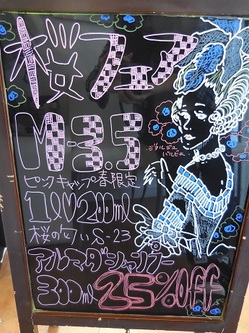 桜フェア
M-3.5
ピンクキャップ春限定
200ml
桜の
-23
アルマダシャンプー
300ml 25%off